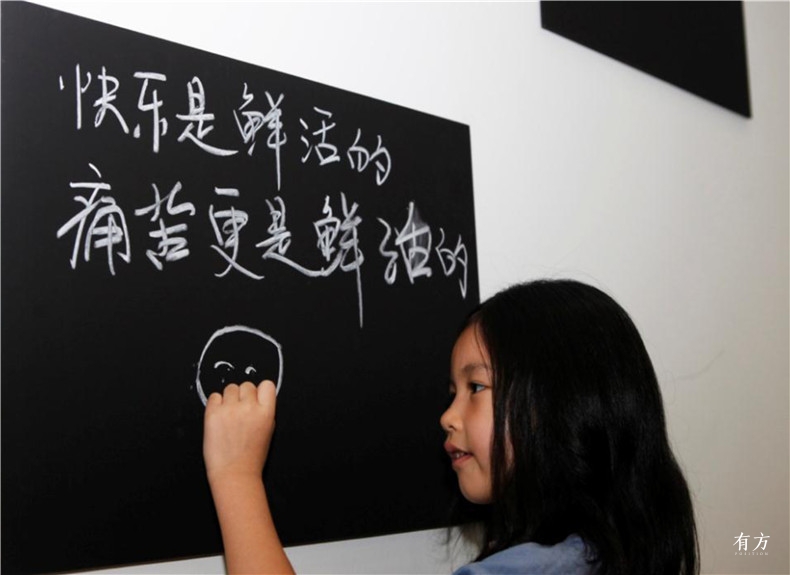 快乐是鲜活的
痛苦更是鲜活的
有方